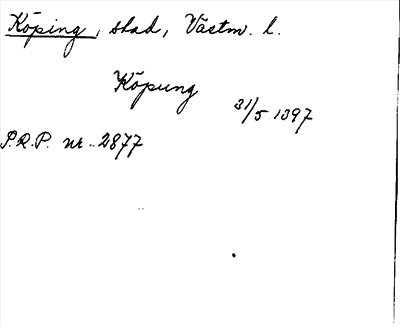 Köping, stad, Västm. l.
Köpung
31/5 1397
P.R.P. nr. 2877